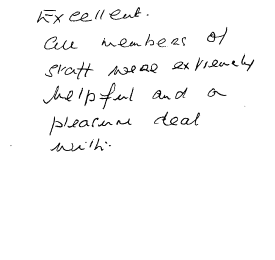 Excellent.
All members of
staff were extremely
helpful and a
pleasure deal
with.